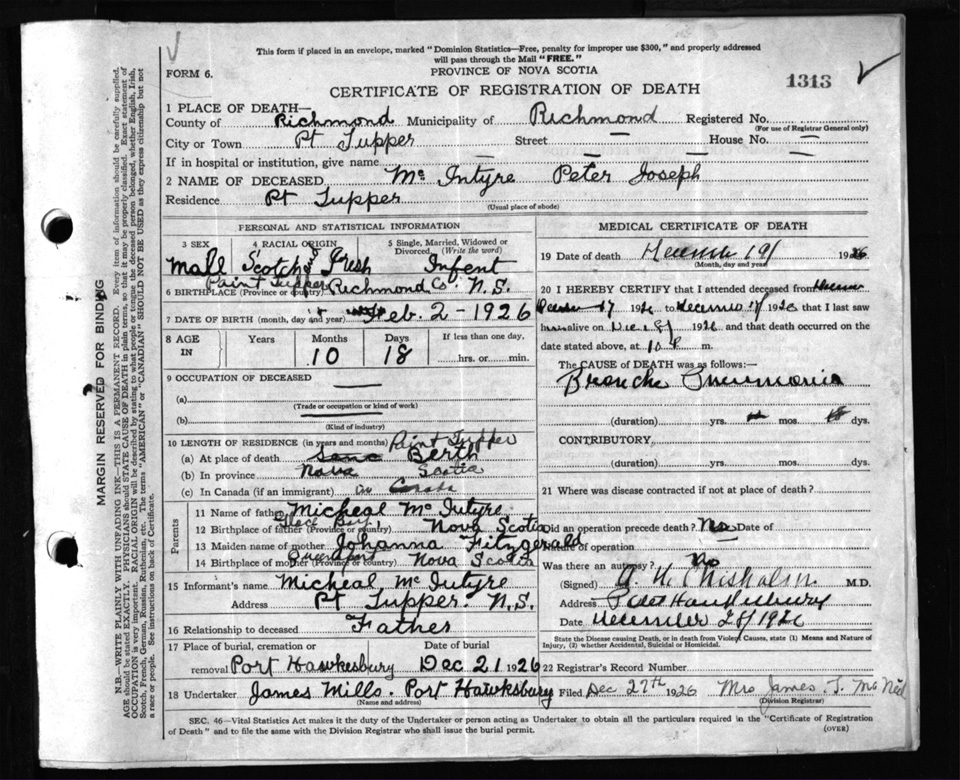 This form if placed in an envelope, marked "Dominion Statistics—Free, penalty for improper use $300," and properly addressed
will pass through the Mail "FREE."
FORM 6.
PROVINCE OF NOVA SCOTIA
1313
CERTIFICATE OF REGISTRATION OF DEATH
1 PLACE OF DEATH—
County of Richmond Municipality of Richmond Registered No.
(For use of Registrar General only)
City or Town Pt Tupper Street — House No. —
If in hospital or institution, give name —
2 NAME OF DECEASED Mc Intyre Peter Joseph
Residence Pt Tupper
(Usual place of abode)
PERSONAL AND STATISTICAL INFORMATION
3 SEX 4 RACIAL ORIGIN 5 Single, Married, Widowed or Divorced. (Write the word)
Mall Scotch and Iresh Infent
Paint Tupper
6 BIRTHPLACE (Province or country) Richmond Co N.S.
7 DATE OF BIRTH (month, day and year) Feb. 2 - 1926
8 AGE IN Years Months Days If less than one day,
10 18 hrs. or min.
9 OCCUPATION OF DECEASED —
(a)
(Trade or occupation or kind of work)
(b)
(Kind of industry)
10 LENGTH OF RESIDENCE (in years and months) Paint Tupper
(a) At place of death Berth
(b) In province Nova Scotia
(c) In Canada (if an immigrant)
Parents
11 Name of father Micheal Mc Intyre
Glace Bay
12 Birthplace of father (Province or country) Nova Scotia
13 Maiden name of mother Johanna Fitzgerald
14 Birthplace of mother (Province or country) Nova Scotia
15 Informant's name Micheal Mc Intyre
Address Pt Tupper. N.S.
16 Relationship to deceased Father
17 Place of burial, cremation or removal Port Hawkesbury Date of burial Dec 21 1926
18 Undertaker James Mills. Port Hawksbury
(Name and address)
MEDICAL CERTIFICATE OF DEATH
19 Date of Death 19/ 1926
(Month, day and year)
20 I HEREBY CERTIFY that I attended deceased from
17 192 to 192 that I last saw
h alive on Dec 192 and that death occurred on
date stated above, at 10 P m.
The CAUSE OF DEATH was as follows:—
Bronche Pneumonia
(duration) yrs. mos. dys.
CONTRIBUTORY
(duration) yrs. mos. dys.
21 Where was disease contracted if not at place of death?
Did an operation precede death? No Date of —
Nature of operation
Was there an autopsy? No
(Signed) A. H. Chisholm. M.D.
Address Port Hawkesbury
Date December 28/192
State the Disease causing Death, or in death from Violent Causes, state (1) Means and Nature of
Injury, (2) whether Accidental, Suicidal or Homicidal.
22 Registrar's Record Number
Filed Dec 27th 1926 Mrs James. T. Mc Neil
(Division Registrar)
SEC. 46—Vital Statistics Act makes it the duty of the Undertaker or person acting as Undertaker to obtain all the particulars required in the "Certificate of Registration
of Death" and to file the same with the Division Registrar who shall issue the burial permit.
(OVER)
MARGIN RESERVED FOR BINDING
N.B.—WRITE PLAINLY WITH UNFADING INK—THIS IS A PERMANENT RECORD. Every item of information should be carefully supplied.
AGE should be stated EXACTLY. PHYSICIANS should STATE CAUSE OF DEATH in plain terms, so that it may be properly classified. Exact statement of
OCCUPATION is very important. RACIAL ORIGIN will be described by stating to what people or tongue the deceased person belonged, whether English, Irish,
Scotch, French, German, Russian, Ruthenian, etc. The terms "AMERICAN" or "CANADIAN" SHOULD NOT BE USED as they express citizenship but not
a race or people. See instructions on back of Certificate.